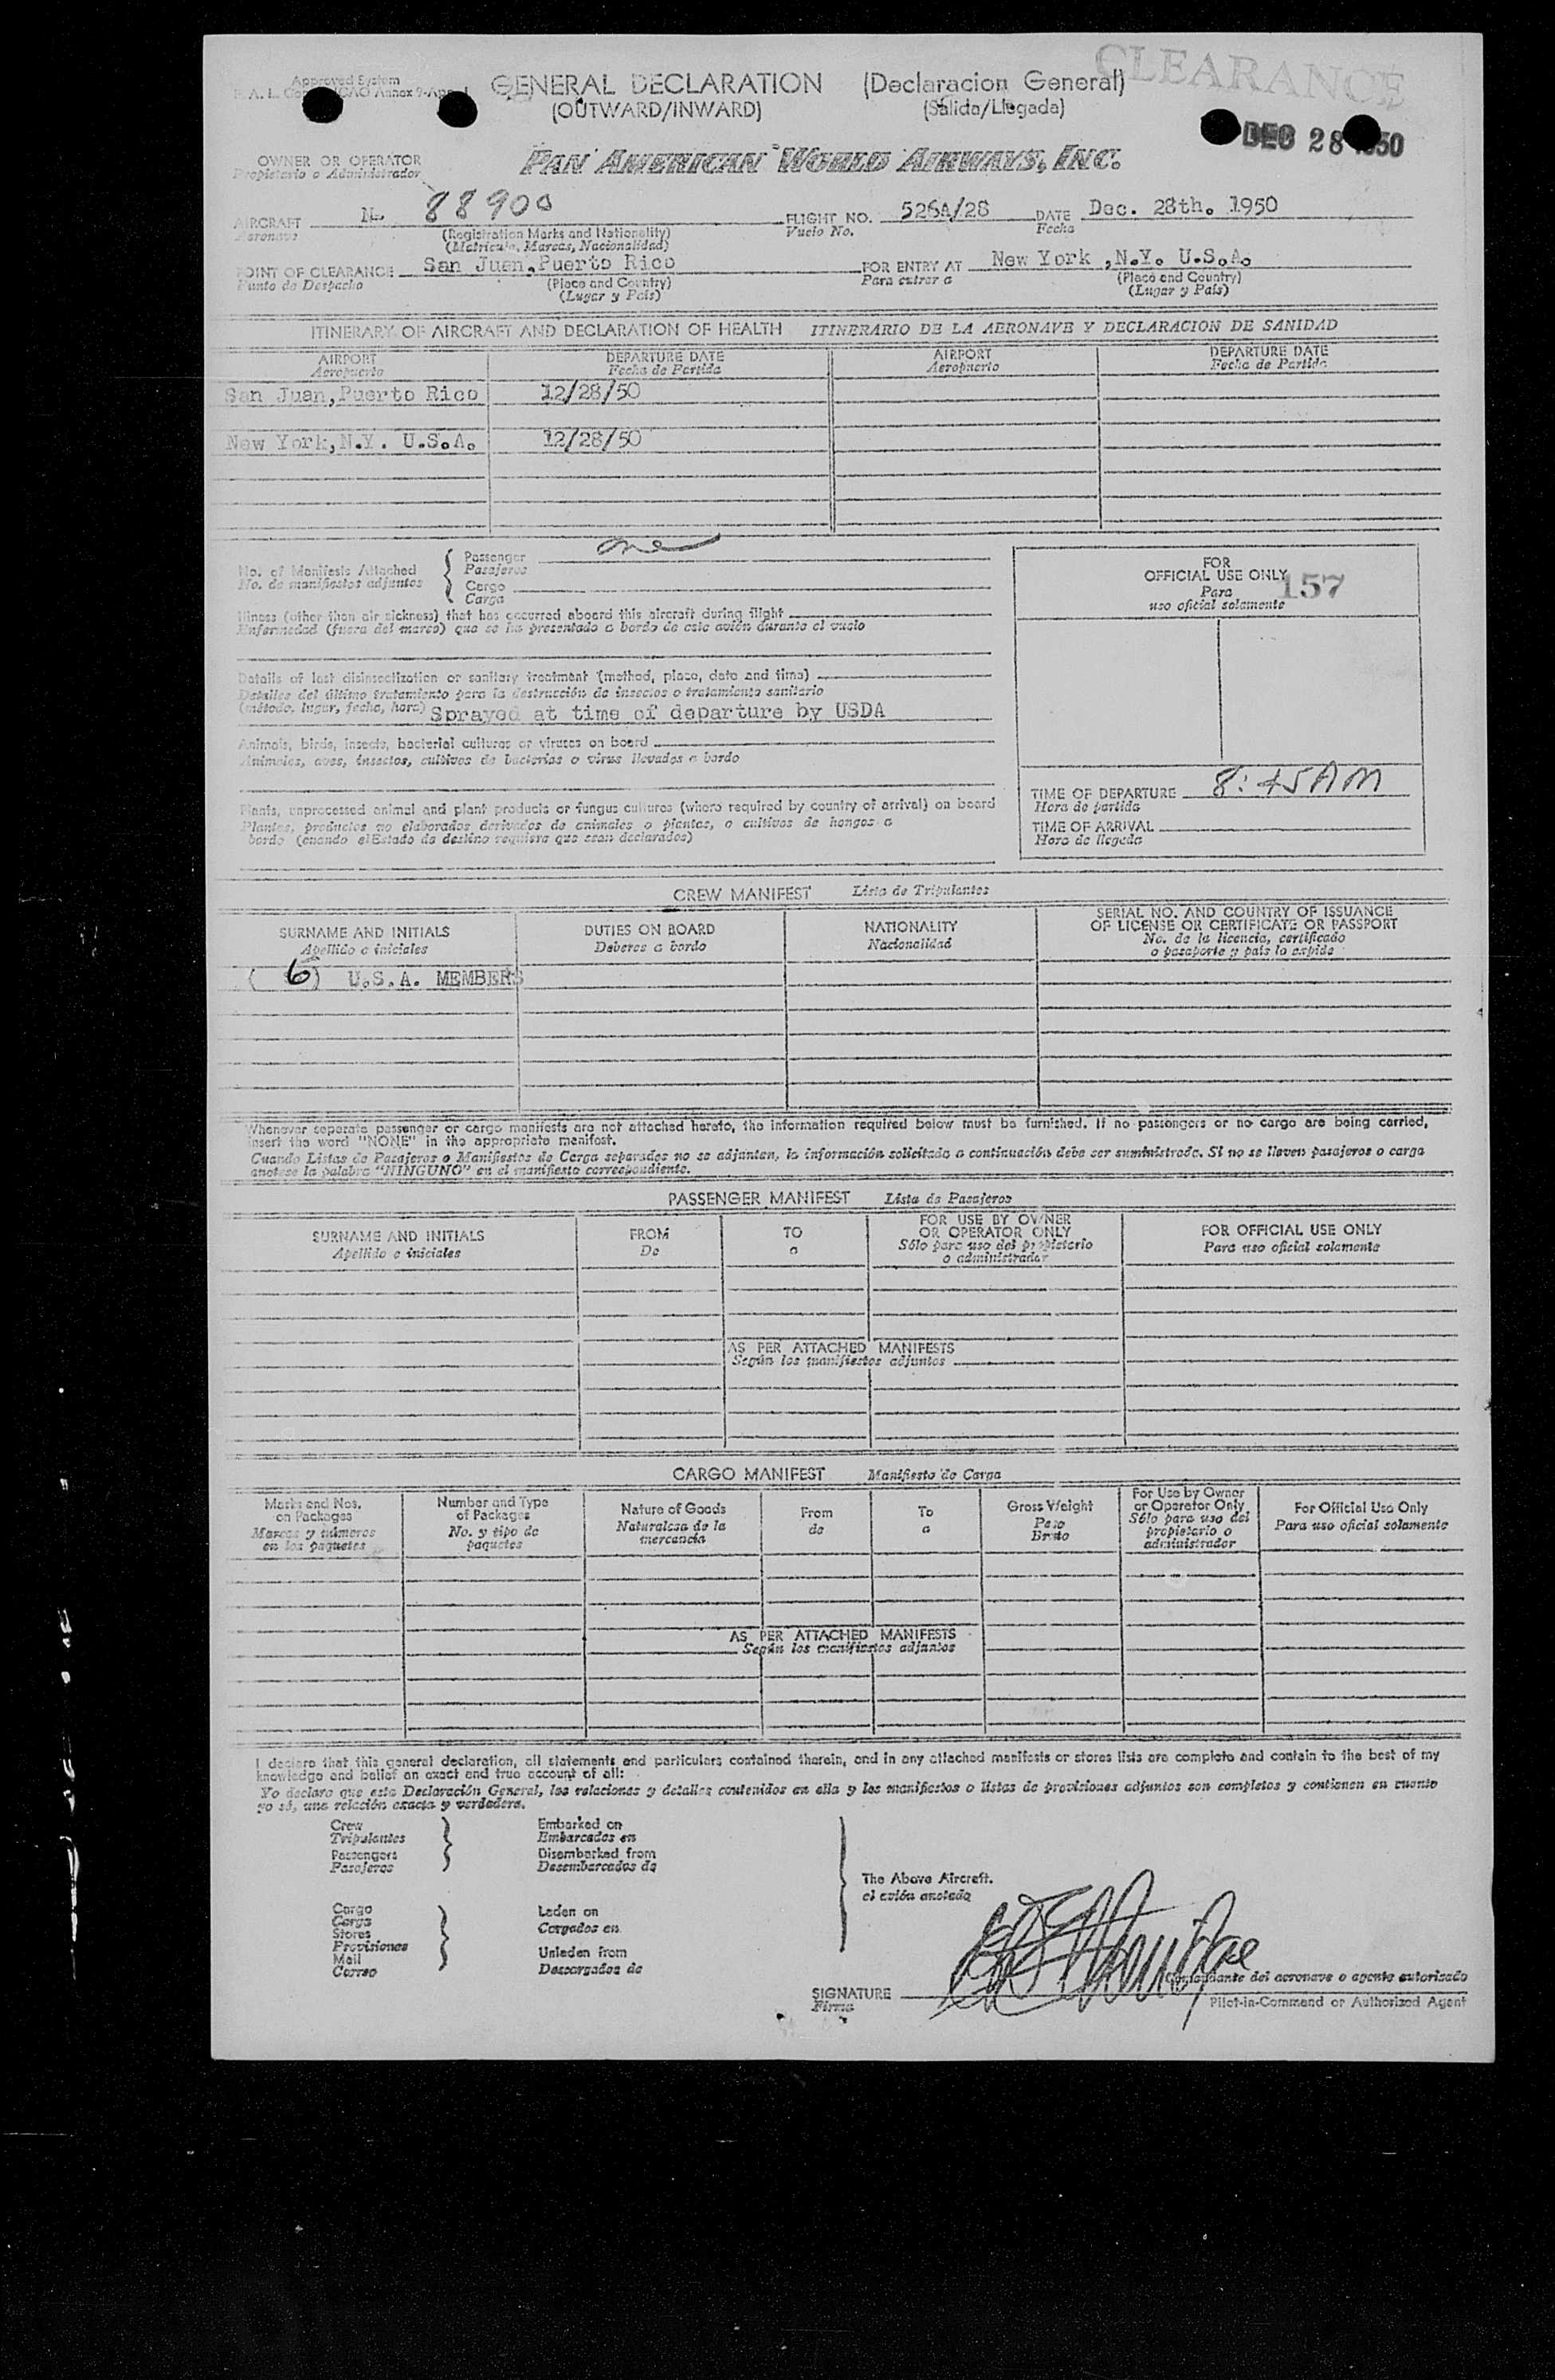 CLEARANCE
Approved System
GENERAL DECLARATION (Declaracion General)
(OUTWARD/INWARD) (Salida/Llegada)
DEC 28 1950
OWNER OR OPERATOR
Propietario o Administrador
PAN AMERICAN WORLD AIRWAYS, INC.
AIRCRAFT N- 88900 FLIGHT NO. 526A/28 DATE Dec. 28th. 1950
Aeronave (Registration Marks and Nationality) Vuelo No. Fecha
(Matricula, Marcas, Nacionalidad)
POINT OF CLEARANCE San Juan, Puerto Rico FOR ENTRY AT New York ,N.Y. U.S.A.
Punto de Despacho (Place and Country) Para entrar a (Place and Country)
(Lugar y País) (Lugar y País)
ITINERARY OF AIRCRAFT AND DECLARATION OF HEALTH ITINERARIO DE LA AERONAVE Y DECLARACION DE SANIDAD
AIRPORT DEPARTURE DATE AIRPORT DEPARTURE DATE
Aeropuerto Fecha de Partida Aeropuerto Fecha de Partida
San Juan,Puerto Rico 12/28/50
New York,N.Y. U.S.A. 12/28/50
No. of Manifests Attached
No. de manifiestos adjuntos
Passenger one
Pasajeros
Cargo
Carga
FOR
OFFICIAL USE ONLY 157
Para
uso oficial solamente
Illness (other than air sickness) that has occurred aboard this aircraft during flight
Enfermedad (fuera del mareo) que se ha presentado a bordo de este avión durante el vuelo
Details of last disinsectization or sanitary treatment (method, place, date and time)
Detalles del último tratamiento para la destrucción de insectos o tratamiento sanitario
(método, lugar, fecha, hora) Sprayed at time of departure by USDA
Animals, birds, insects, bacterial cultures or viruses on board
Animales, aves, insectos, cultivos de bacterias o virus llevados a bordo
Plants, unprocessed animal and plant products or fungus cultures (where required by country of arrival) on board
Plantas, productos no elaborados derivados de animales o plantas, o cultivos de hongos a
bordo (cuando el Estado de destino requiera que sean declarados)
TIME OF DEPARTURE 8:45AM
Hora de partida
TIME OF ARRIVAL
Hora de llegada
CREW MANIFEST Lista de Tripulantes
SURNAME AND INITIALS DUTIES ON BOARD NATIONALITY SERIAL NO. AND COUNTRY OF ISSUANCE
OF LICENSE OR CERTIFICATE OR PASSPORT
Apellido e iniciales Deberes a bordo Nacionalidad No. de la licencia, certificado
o pasaporte y país lo expide
( 6 ) U.S.A. MEMBERS
Whenever separate passenger or cargo manifests are not attached hereto, the information required below must be furnished. If no passengers or no cargo are being carried,
insert the word "NONE" in the appropriate manifest.
Cuando Listas de Pasajeros o Manifiestos de Carga separados no se adjunten, la información solicitada a continuación debe ser suministrada. Si no se lleven pasajeros o carga
anotese la palabra "NINGUNO" en el manifiesto correspondiente.
PASSENGER MANIFEST Lista de Pasajeros
SURNAME AND INITIALS FROM TO FOR USE BY OWNER
OR OPERATOR ONLY FOR OFFICIAL USE ONLY
Apellido e iniciales De a Sólo para uso del propietario
o administrador Para uso oficial solamente
AS PER ATTACHED MANIFESTS
Según los manifiestos adjuntos
CARGO MANIFEST Manifiesto de Carga
Marks and Nos.
on Packages
Marcas y números
en los paquetes
Number and Type
of Packages
No. y tipo de
paquetes
Nature of Goods
Naturaleza de la
mercancía
From
de
To
a
Gross Weight
Peso
Bruto
For Use by Owner
or Operator Only
Sólo para uso del
propietario o
administrador
For Official Use Only
Para uso oficial solamente
AS PER ATTACHED MANIFESTS
Según los manifiestos adjuntos
I declare that this general declaration, all statements and particulars contained therein, and in any attached manifests or stores lists are complete and contain to the best of my
knowledge and belief an exact and true account of all:
Yo declaro que esta Declaración General, las relaciones y detalles contenidos en ella y los manifiestos o listas de provisiones adjuntos son completos y contienen en cuanto
yo sé, una relación exacta y verdadera.
Crew Embarked on
Tripulantes Embarcados en
Passengers Disembarked from
Pasajeros Desembarcados de
The Above Aircraft.
el avión anotado
Cargo Laden on
Carga Cargados en
Stores
Provisiones Unladen from
Mail Descargados de
Correo
Comandante del aeronave o agente autorizado
SIGNATURE
Firma
Pilot-in-Command or Authorized Agent